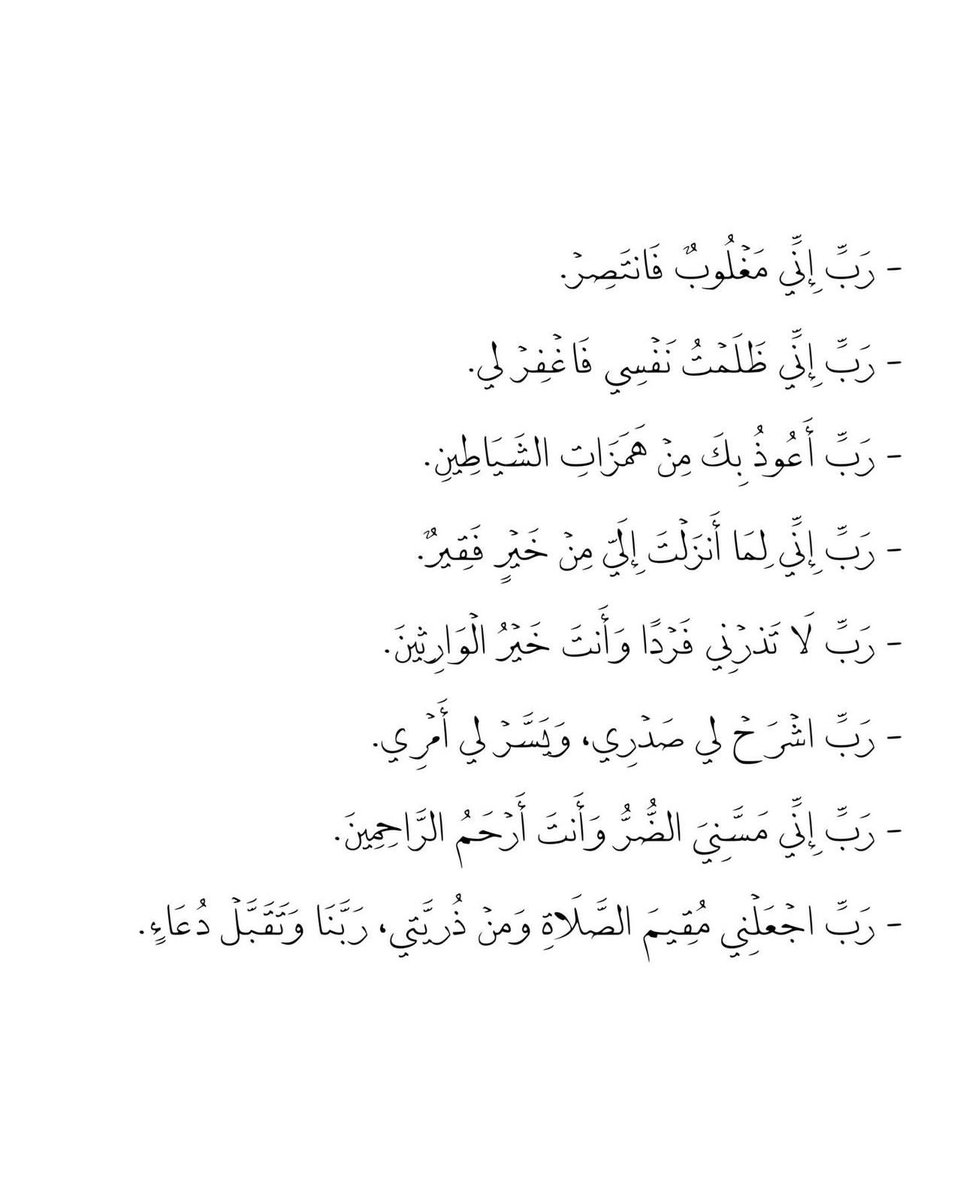 - رَبِّ إِنِّي مَغْلُوبٌ فَانتَصِرْ.
- رَبِّ إِنِّي ظَلَمْتُ نَفْسِي فَاغْفِرْ لي.
- رَبِّ أَعُوذُ بِكَ مِنْ هَمَزَاتِ الشَّيَاطِينِ.
- رَبِّ إِنِّي لِمَا أَنزَلْتَ إِلَيّ مِنْ خَيْرٍ فَقِيرٌ.
- رَبِّ لَا تَذرْنِي فَرْدًا وَأَنتَ خَيْرُ الْوَارِثِينَ.
- رَبِّ اشْرَحْ لي صَدْرِي، وَيَسَّرْ لي أَمْرِي.
- رَبِّ إِنِّي مَسَّنِيَ الضُّرُّ وَأَنتَ أَرْحَمُ الرَّاحِمِينَ.
- رَبِّ اجْعَلْنِي مُقِيمَ الصَّلَاةِ وَمَنْ ذُرِيَّتِي، رَبَّنَا وَتَقَبَّلْ دُعَاءٍ.